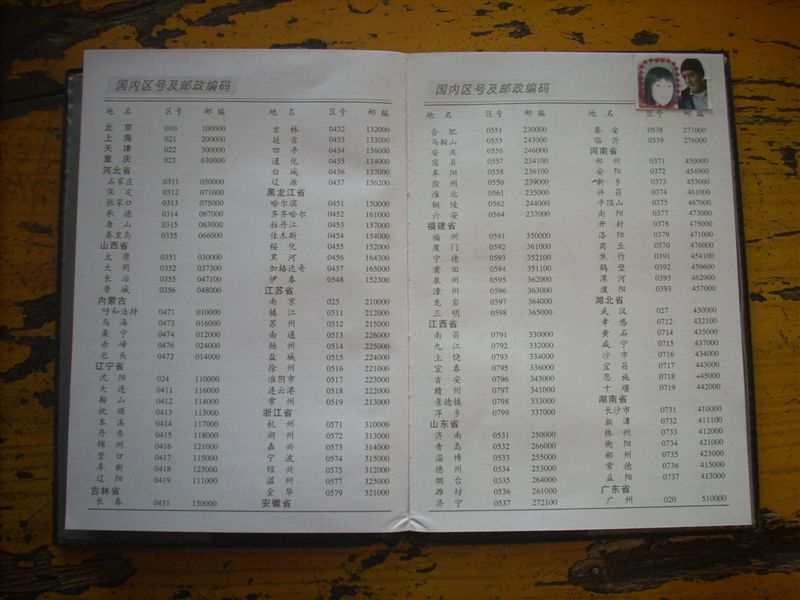 国内区号及邮政编码
地 名 区号 邮 编
北 京 010 100000
上 海 021 200000
天 津 022 300000
重 庆 023 630000
河北省
石家庄 0311 050000
保 定 0312 071000
张家口 0313 075000
承 德 0314 067000
唐 山 0315 063000
秦皇岛 0335 066000
山西省
太 原 0351 030000
大 同 0352 037300
长 治 0355 047100
晋 城 0356 048000
内蒙古
呼和浩特 0471 010000
乌 海 0473 016000
集 宁 0474 012000
赤 峰 0476 024000
包 头 0472 014000
辽宁省
沈 阳 024 110000
大 连 0411 116000
鞍 山 0412 114000
抚 顺 0413 113000
本 溪 0414 117000
丹 东 0415 118000
锦 州 0416 121000
营 口 0417 115000
阜 新 0418 123000
辽 阳 0419 111000
吉林省
长 春 0431 130000
地 名 区号 邮 编
吉 林 0432 132000
延 吉 0433 133000
四 平 0434 136000
通 化 0435 134000
白 城 0436 137000
辽 源 0437 136200
黑龙江省
哈尔滨 0451 150000
齐齐哈尔 0452 161000
牡丹江 0453 157000
佳木斯 0454 154000
绥 化 0455 152000
黑 河 0456 164300
加格达奇 0457 165000
伊 春 0548 152300
江苏省
南 京 025 210000
镇 江 0511 212000
苏 州 0512 215000
南 通 0513 226000
扬 州 0514 225000
盐 城 0515 224000
徐 州 0516 221000
淮阴市 0517 223000
连云港 0518 222000
常 州 0519 213000
浙江省
杭 州 0571 310000
湖 州 0572 313000
嘉 兴 0573 314000
宁 波 0574 315000
绍 兴 0575 312000
温 州 0577 325000
金 华 0579 321000
安徽省
国内区号及邮政编码
地 名 区号 邮 编
合 肥 0551 230000
马鞍山 0555 243000
安 庆 0556 246000
宿 县 0557 234100
阜 阳 0558 236100
徐 州 0550 239000
淮 北 0561 235000
铜 陵 0562 244000
六 安 0564 237000
福建省
福 州 0591 350000
厦 门 0592 361000
宁 德 0593 352100
莆 田 0594 351100
泉 州 0595 362000
漳 州 0596 363000
龙 岩 0597 364000
三 明 0598 365000
江西省
南 昌 0791 330000
九 江 0792 332000
上 饶 0793 334000
宜 春 0795 336000
吉 安 0796 343000
赣 州 0797 341000
景德镇 0798 333000
萍 乡 0799 337000
山东省
济 南 0531 250000
青 岛 0532 266000
淄 博 0533 255000
德 州 0534 253000
烟 台 0535 264000
潍 坊 0536 261000
济 宁 0537 272100
地 名 区号 邮 编
泰 安 0538 271000
临 沂 0539 276000
河南省
郑 州 0371 450000
安 阳 0372 454900
新 乡 0373 453000
许 昌 0374 461000
平顶山 0375 467000
南 阳 0377 473000
开 封 0378 475000
洛 阳 0379 471000
商 丘 0370 476000
焦 作 0391 454100
鹤 壁 0392 456600
漯 河 0395 462000
濮 阳 0393 457000
湖北省
武 汉 027 430000
孝 感 0712 432100
黄 石 0714 435000
咸 宁 0715 437000
沙 市 0716 434000
宜 昌 0717 443000
恩 施 0718 445000
十 堰 0719 442000
湖南省
长沙市 0731 410000
湘 潭 0732 411100
株 州 0733 412000
衡 阳 0734 421000
郴 州 0735 423000
常 德 0736 415000
益 阳 0737 413000
广东省
广 州 020 510000